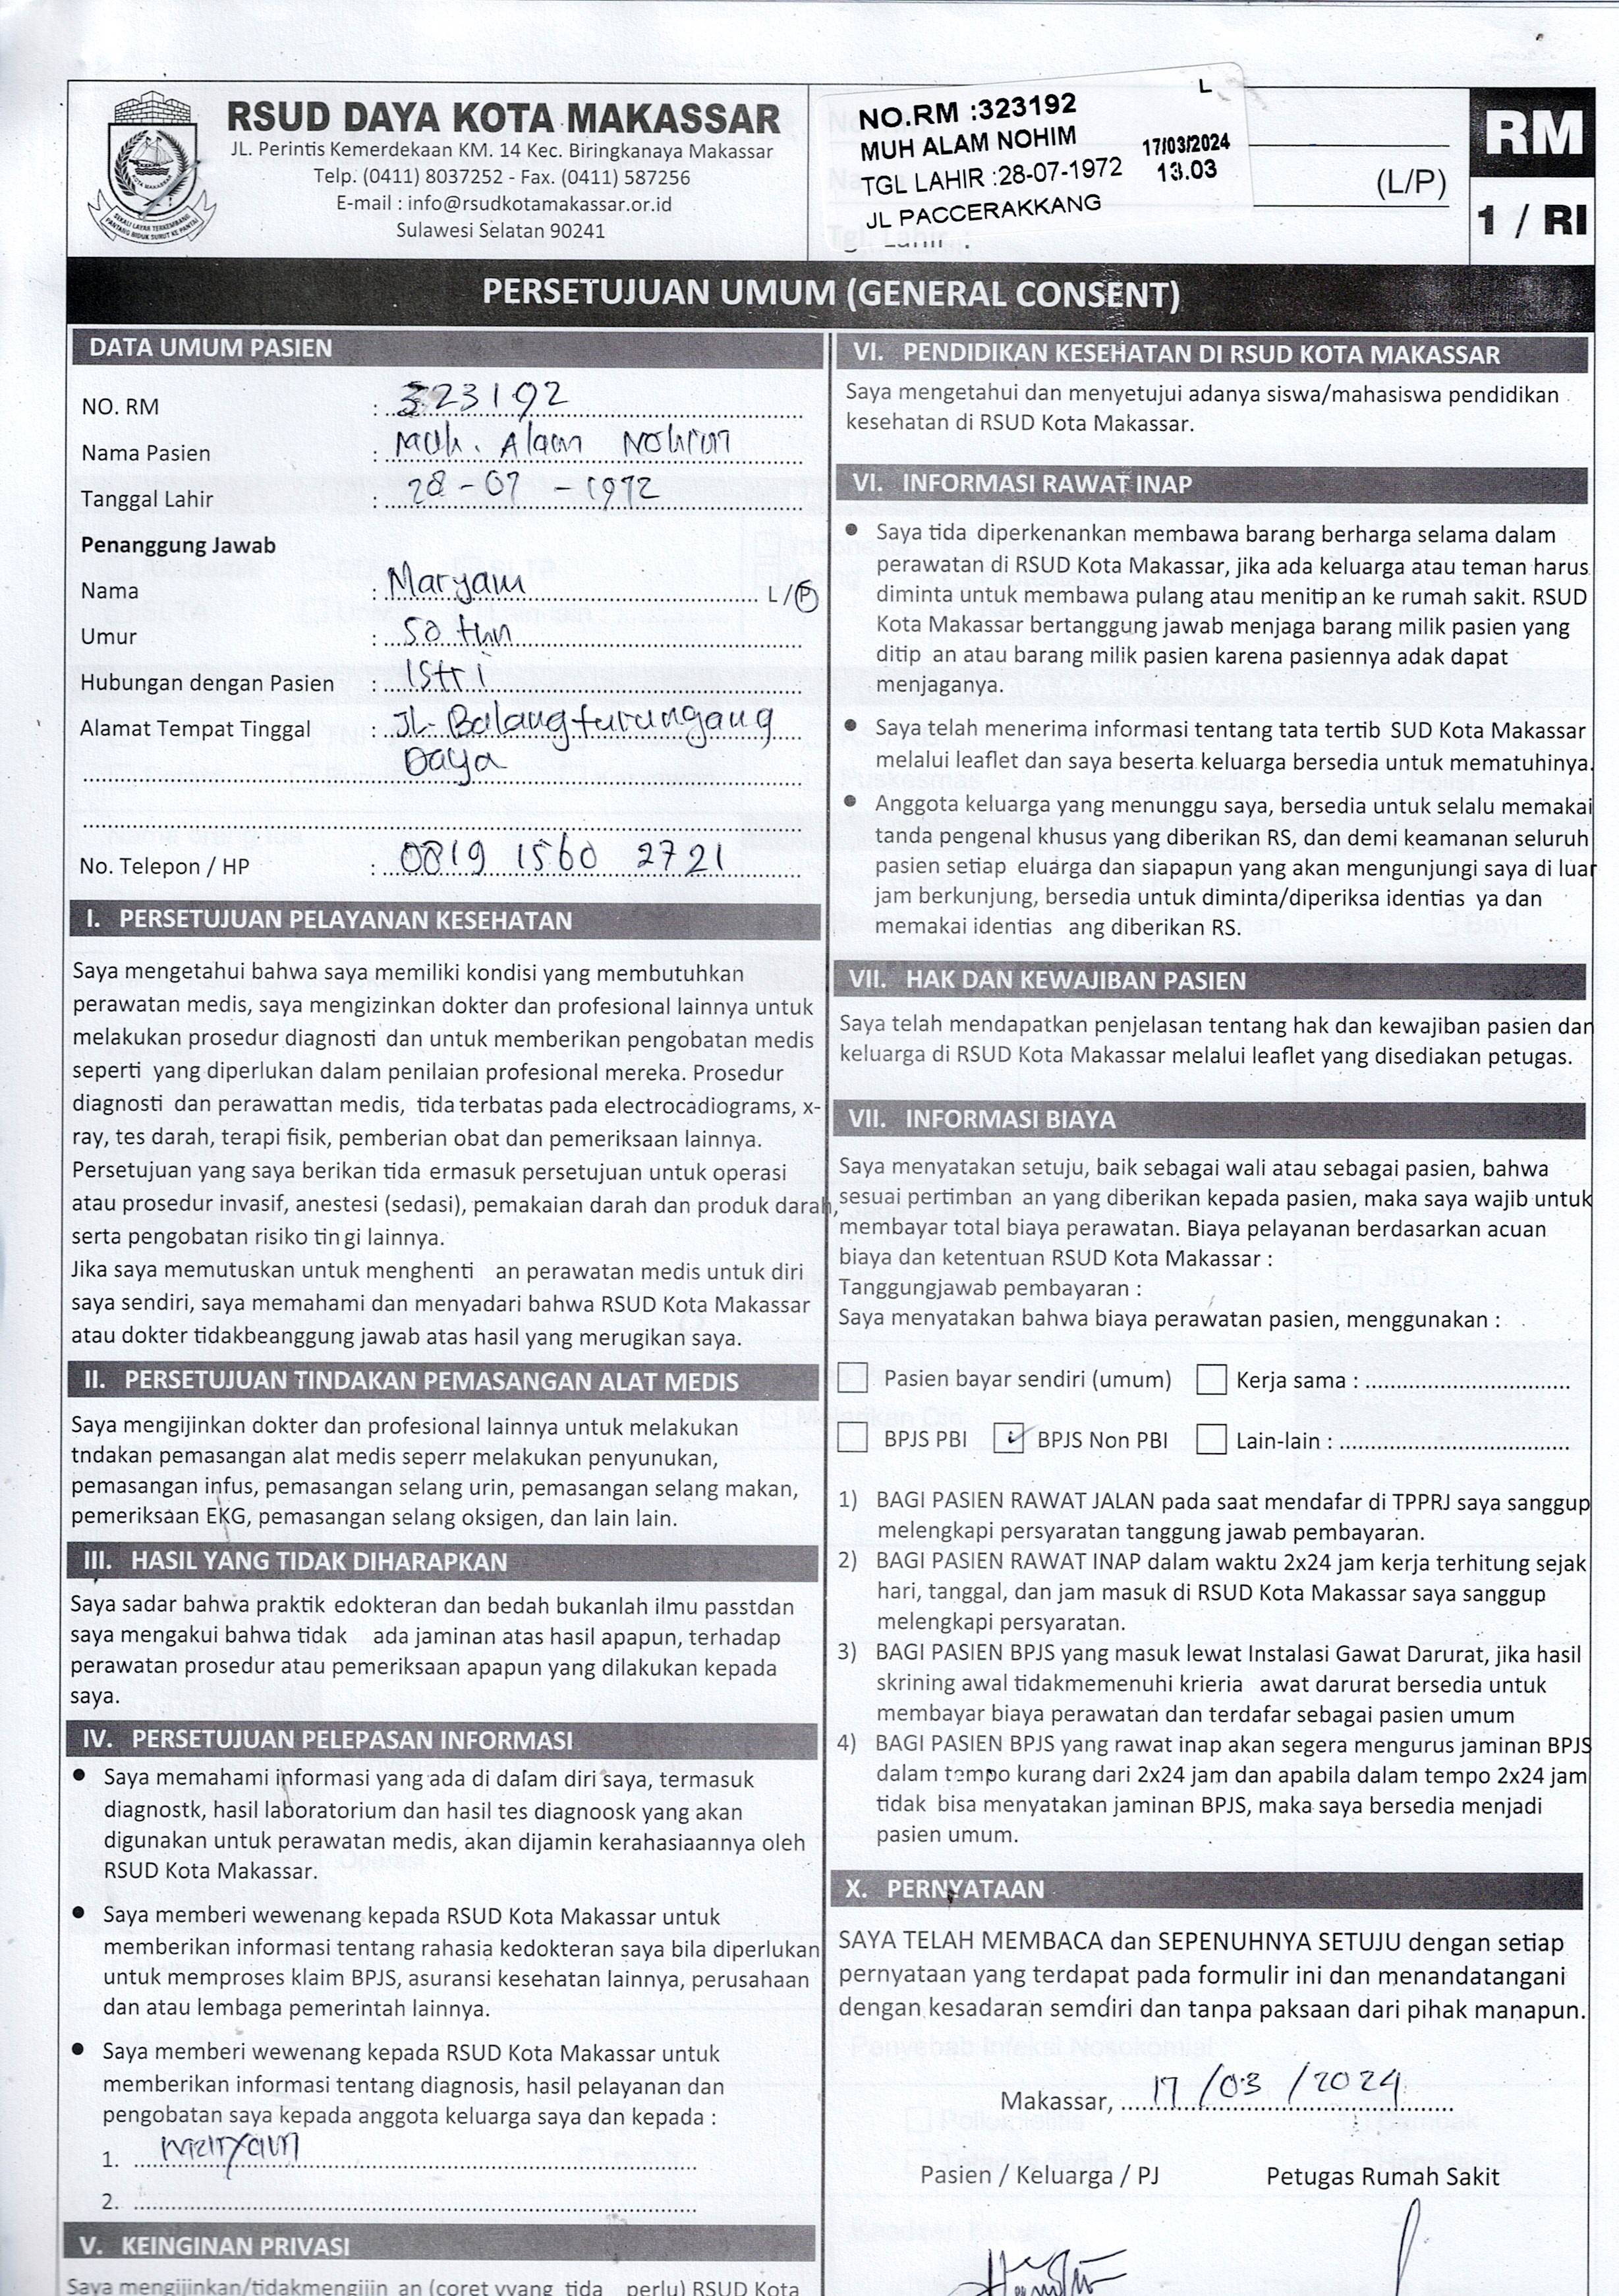 RSUD DAYA KOTA MAKASSAR
JL. Perintis Kemerdekaan KM. 14 Kec. Biringkanaya Makassar
Telp. (0411) 8037252 - Fax. (0411) 587256
E-mail : info@rsudkotamakassar.or.id
Sulawesi Selatan 90241
L
NO.RM :323192
MUH ALAM NOHIM 17/03/2024
TGL LAHIR :28-07-1972 13.03
JL PACCERAKKANG
(L/P)
RM
1 / RI
PERSETUJUAN UMUM (GENERAL CONSENT)
DATA UMUM PASIEN
NO. RM : 323192
Nama Pasien : Muh. Alam Nohim
Tanggal Lahir : 28 - 07 - 1972
Penanggung Jawab
Nama : Maryam L/P
Umur : 50 thn
Hubungan dengan Pasien : Istri
Alamat Tempat Tinggal : Jl. Balangturungang
Daya
No. Telepon / HP : 0819 1560 2721
I. PERSETUJUAN PELAYANAN KESEHATAN
Saya mengetahui bahwa saya memiliki kondisi yang membutuhkan
perawatan medis, saya mengizinkan dokter dan profesional lainnya untuk
melakukan prosedur diagnosti dan untuk memberikan pengobatan medis
seperti yang diperlukan dalam penilaian profesional mereka. Prosedur
diagnosti dan perawattan medis, tida terbatas pada electrocadiograms, x-
ray, tes darah, terapi fisik, pemberian obat dan pemeriksaan lainnya.
Persetujuan yang saya berikan tida ermasuk persetujuan untuk operasi
atau prosedur invasif, anestesi (sedasi), pemakaian darah dan produk darah,
serta pengobatan risiko tin gi lainnya.
Jika saya memutuskan untuk menghenti an perawatan medis untuk diri
saya sendiri, saya memahami dan menyadari bahwa RSUD Kota Makassar
atau dokter tidakbeanggung jawab atas hasil yang merugikan saya.
II. PERSETUJUAN TINDAKAN PEMASANGAN ALAT MEDIS
Saya mengijinkan dokter dan profesional lainnya untuk melakukan
tndakan pemasangan alat medis seperr melakukan penyunukan,
pemasangan infus, pemasangan selang urin, pemasangan selang makan,
pemeriksaan EKG, pemasangan selang oksigen, dan lain lain.
III. HASIL YANG TIDAK DIHARAPKAN
Saya sadar bahwa praktik edokteran dan bedah bukanlah ilmu passtdan
saya mengakui bahwa tidak ada jaminan atas hasil apapun, terhadap
perawatan prosedur atau pemeriksaan apapun yang dilakukan kepada
saya.
IV. PERSETUJUAN PELEPASAN INFORMASI
• Saya memahami informasi yang ada di dalam diri saya, termasuk
diagnostk, hasil laboratorium dan hasil tes diagnoosk yang akan
digunakan untuk perawatan medis, akan dijamin kerahasiaannya oleh
RSUD Kota Makassar.
• Saya memberi wewenang kepada RSUD Kota Makassar untuk
memberikan informasi tentang rahasia kedokteran saya bila diperlukan
untuk memproses klaim BPJS, asuransi kesehatan lainnya, perusahaan
dan atau lembaga pemerintah lainnya.
• Saya memberi wewenang kepada RSUD Kota Makassar untuk
memberikan informasi tentang diagnosis, hasil pelayanan dan
pengobatan saya kepada anggota keluarga saya dan kepada :
1. maryam
2.
V. KEINGINAN PRIVASI
Saya mengijinkan/tidakmengijin an (coret yyang tida perlu) RSUD Kota
VI. PENDIDIKAN KESEHATAN DI RSUD KOTA MAKASSAR
Saya mengetahui dan menyetujui adanya siswa/mahasiswa pendidikan
kesehatan di RSUD Kota Makassar.
VI. INFORMASI RAWAT INAP
• Saya tida diperkenankan membawa barang berharga selama dalam
perawatan di RSUD Kota Makassar, jika ada keluarga atau teman harus
diminta untuk membawa pulang atau menitip an ke rumah sakit. RSUD
Kota Makassar bertanggung jawab menjaga barang milik pasien yang
ditip an atau barang milik pasien karena pasiennya adak dapat
menjaganya.
• Saya telah menerima informasi tentang tata tertib SUD Kota Makassar
melalui leaflet dan saya beserta keluarga bersedia untuk mematuhinya.
• Anggota keluarga yang menunggu saya, bersedia untuk selalu memakai
tanda pengenal khusus yang diberikan RS, dan demi keamanan seluruh
pasien setiap eluarga dan siapapun yang akan mengunjungi saya di luar
jam berkunjung, bersedia untuk diminta/diperiksa identias ya dan
memakai identias ang diberikan RS.
VII. HAK DAN KEWAJIBAN PASIEN
Saya telah mendapatkan penjelasan tentang hak dan kewajiban pasien dan
keluarga di RSUD Kota Makassar melalui leaflet yang disediakan petugas.
VII. INFORMASI BIAYA
Saya menyatakan setuju, baik sebagai wali atau sebagai pasien, bahwa
sesuai pertimban an yang diberikan kepada pasien, maka saya wajib untuk
membayar total biaya perawatan. Biaya pelayanan berdasarkan acuan
biaya dan ketentuan RSUD Kota Makassar :
Tanggungjawab pembayaran :
Saya menyatakan bahwa biaya perawatan pasien, menggunakan :
Pasien bayar sendiri (umum) Kerja sama :
BPJS PBI ✓ BPJS Non PBI Lain-lain :
1) BAGI PASIEN RAWAT JALAN pada saat mendafar di TPPRJ saya sanggup
melengkapi persyaratan tanggung jawab pembayaran.
2) BAGI PASIEN RAWAT INAP dalam waktu 2x24 jam kerja terhitung sejak
hari, tanggal, dan jam masuk di RSUD Kota Makassar saya sanggup
melengkapi persyaratan.
3) BAGI PASIEN BPJS yang masuk lewat Instalasi Gawat Darurat, jika hasil
skrining awal tidakmemenuhi krieria awat darurat bersedia untuk
membayar biaya perawatan dan terdafar sebagai pasien umum
4) BAGI PASIEN BPJS yang rawat inap akan segera mengurus jaminan BPJS
dalam tempo kurang dari 2x24 jam dan apabila dalam tempo 2x24 jam
tidak bisa menyatakan jaminan BPJS, maka saya bersedia menjadi
pasien umum.
X. PERNYATAAN
SAYA TELAH MEMBACA dan SEPENUHNYA SETUJU dengan setiap
pernyataan yang terdapat pada formulir ini dan menandatangani
dengan kesadaran semdiri dan tanpa paksaan dari pihak manapun.
Makassar, 17 / 03 / 2024
Pasien / Keluarga / PJ Petugas Rumah Sakit